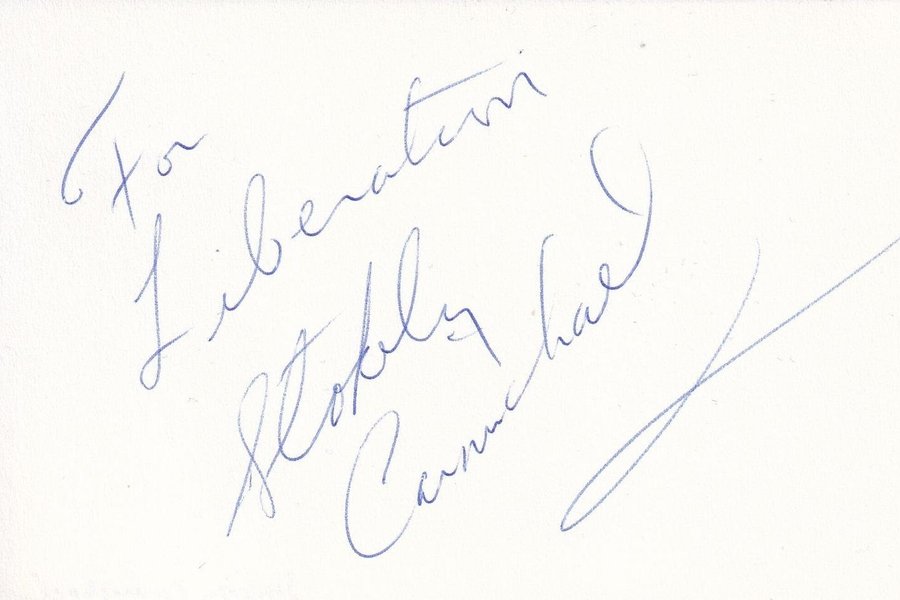 For
Liberation
Stokely
Carmichael